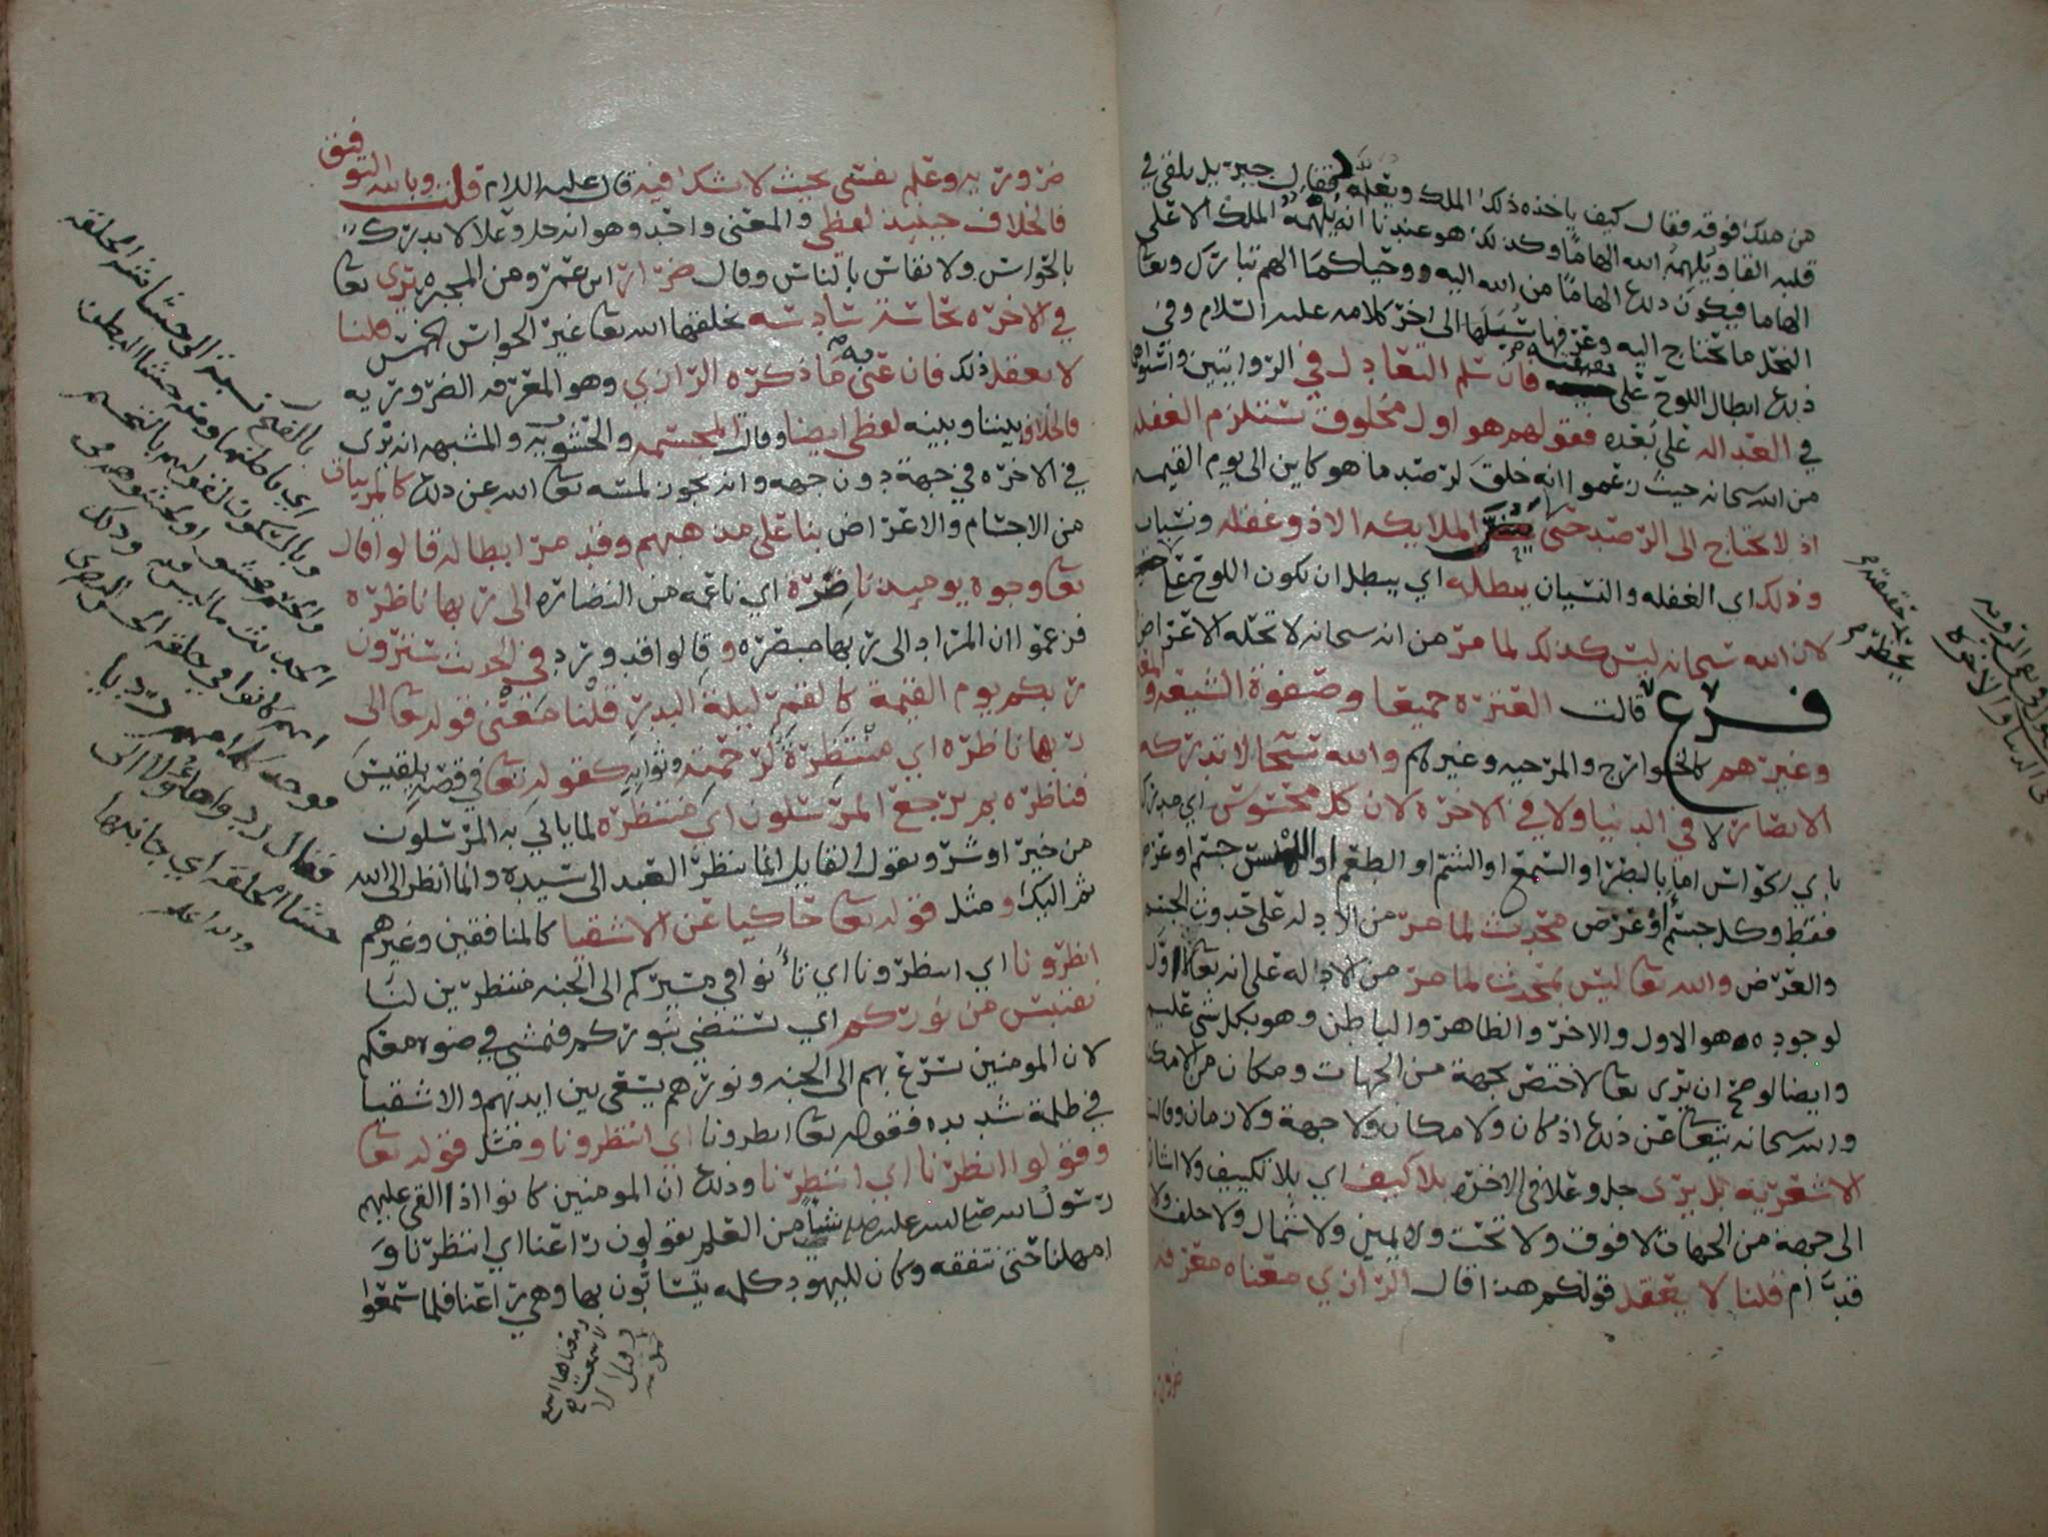 من ملك فوقه فقال كيف ياخذه ذلك الملك ويعلمه فقال جبريل يلقى في
قلبه القا ويلهمه الله الهاما وكذلك هو عندنا انه يلهمه الملك الاعلى
الهاما فيكون ذلك الهاما من الله اليه ووحيا كما الهم تبارك وتعا
النحل ما تحتاج اليه وعرفها سبلها الى اخر كلامه عليه السلام وفي
ذلك ابطال اللوح على فان سلم التعادل في الروايتين واستواهما
في العداله على بعده فقولهم هو اول مخلوق تستلزم الغفله
من الله سبحانه حيث زعموا انه خلق لرصد ما هو كاين الى يوم القيمه
اذ لا يحتاج الى الرصد حتى الملايكه الا ذو غفله ونسيان
وذلك اي الغفله والنسيان يبطله اي يبطل ان يكون اللوح
لان الله سبحانه ليس كذلك لما مر من انه سبحانه لا تحله الاعراض
فرع قالت العتره جميعا وصفوة الشيعه
وغيرهم كالخوارج والمرجيه وغيرهم والله سبحانه لا تدركه
الابصار لا في الدنيا ولا في الاخره لان كل محسوس اي مدرك
باي الحواس اما بالبصر او السمع او الشم او الطعم او اللمس جسم او عرض
فقط وكل جسم او عرض محدث لما مر من الادله على حدوث الجسم
والعرض والله تعا ليس بمحدث لما مر من الادله على انه تعا لا اول
لوجوده هو الاول والاخر والظاهر والباطن وهو بكل شي عليم
وايضا لو صح ان يرى تعا لاختص بجهة من الجهات ومكان من الامكنه
والله سبحانه يتعا عن ذلك اذ كان ولا مكان ولا جهة ولا زمان وقالت
الاشعريه بل يرى جل وعلا في الاخره بلا كيف اي بلا تكييف ولا اشاره
الى جهة من الجهات لا فوق ولا تحت ولا يمين ولا شمال ولا خلف ولا
قدام قلنا لا يعقل قولكم هذا قال الرازي معناه معرفه
ضروريه
ضروريه وعلم نفسي بحيث لا يشك فيه قال عليه السلام قلت وبالله التوفيق
فالخلاف حينيذ لفظي والمعنى واحد وهو انه جل وعلا لا يدرك
بالحواس ولا يقاس بالناس وقال ضرار ابن عمرو من المجبره يرى تعا
في الاخره بحاسة سادسه يخلقها الله تعا غير الحواس الخمس قلنا
لا يعقل ذلك فان عنى به ما ذكره الرازي وهو المعرفه الضروريه
فالخلاف بيننا وبينه لفظي ايضا وقالت المجسمه والحشويه والمشبهه انه يرى
في الاخره في جهة دون جهه وانه يجوز لمسه تعا الله عن ذلك كالمرييات
من الاجسام والاعراض بنا على مذهبهم وقد مر ابطاله قالوا قال
تعا وجوه يوميذ ناضرة اي ناعمه من النضاره الى ربها ناظره
فزعموا ان المراد الى ربها مبصره وقالوا قد ورد في الحديث سترون
ربكم يوم القيمة كالقمر ليلة البدر قلنا معنى قوله تعا الى
ربها ناظره اي منتظرة لرحمته وثوابه كقوله تعا في قصه بلقيس
فناظره بم يرجع المرسلون اي منتظره لما ياتي به المرسلون
من خير او شر ويقول القايل انما ينظر العبد الى سيده وانما انظر الى الله
ثم اليك ومثل قوله تعا حاكيا عن الاشقيا كالمنافقين وغيرهم
انظرونا اي انتظرونا اي تأنوا في مسيركم الى الجنه منتظرين لنا
نقتبس من نوركم اي نستضي بنوركم فنمشي في ضوه معكم
لان المومنين تسرع بهم الى الجنه ونورهم يسعى بين ايديهم والاشقيا
في ظلمة شديده فقوله تعا انظرونا اي انتظرونا ومثل قوله تعا
وقولوا انظرنا اي انتظرنا وذلك ان المومنين كانوا اذا القى عليهم
رسول الله صلى الله عليه شيا من العلم يقولون راعنا اي انتظرنا و
امهلنا حتى نتفقه وكان لليهود كلمه يتسابون بها وهي راعنا فلما سمعوا
بالفتح نسبة الى حشا الحلقه
اي باطنها ومنه حشا البطن
وبالسكون لقولهم بالتجسيم
والجسم محشو
الحديث ما ليس منه وذلك
انهم كانوا في حلقه الحسن البصري
فقال ردوا هاولا الى
حشا الحلقه اي جانبها
والله اعلم